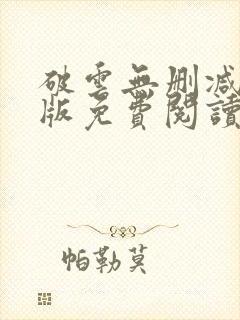 破雲無刪減
版免費閱讀
帕勒莫